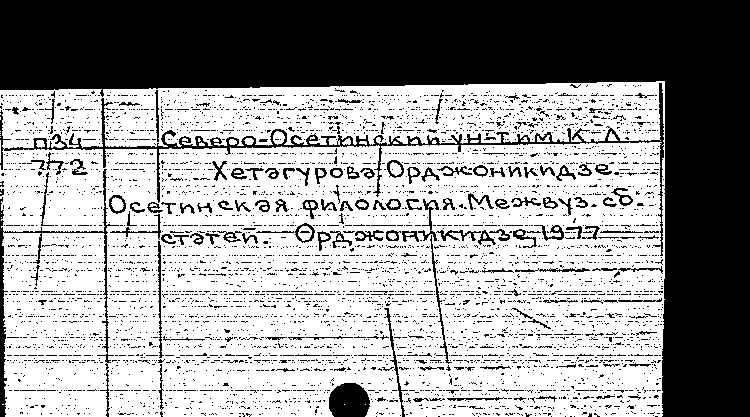 П34 Северо-Осетинский ун-т им. К. Л.
772 Хетагурова, Орджоникидзе.
Осетинская филология. Межвуз. сб.
статей. Орджоникидзе, 1977